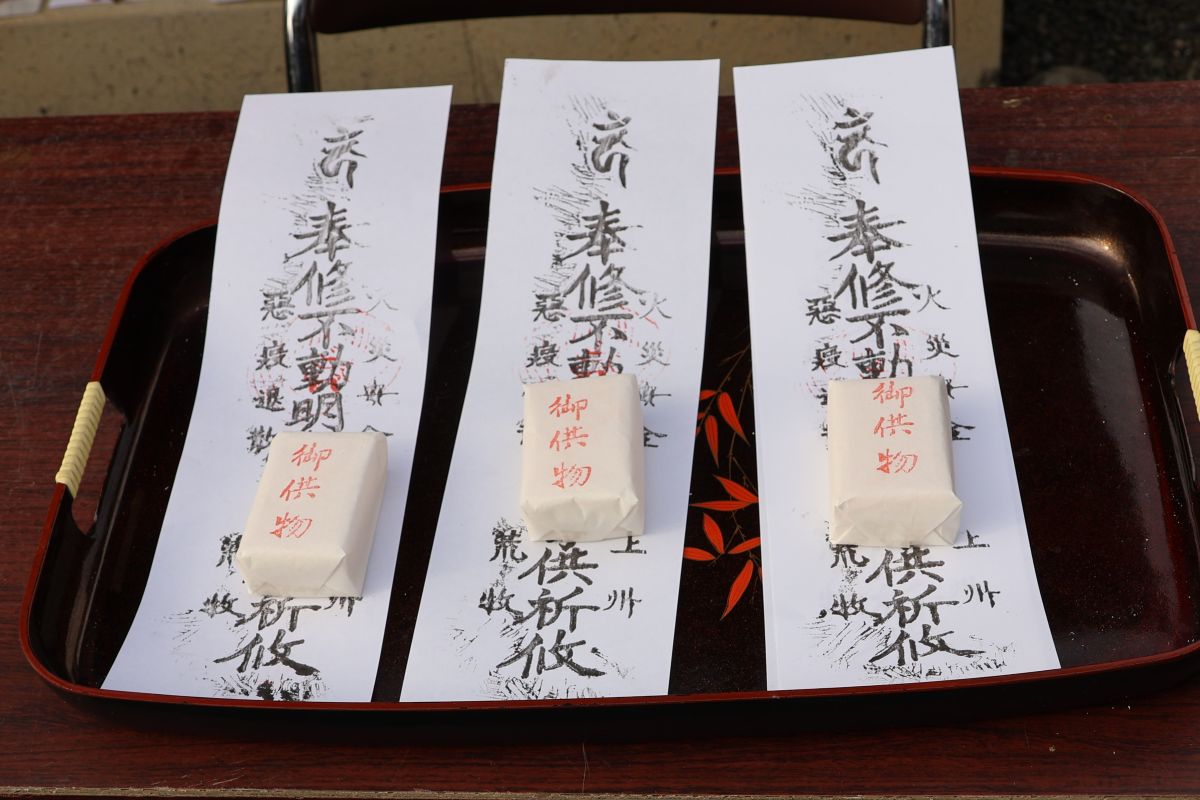 奉修不動明
火災
安全
惡疫退散
供祈攸
上州
荒牧
御供物
奉修不動
火災
安全
惡疫
供祈攸
上州
荒牧
御供物
奉修不動
火災
安全
惡疫
供祈攸
上州
荒牧
御供物